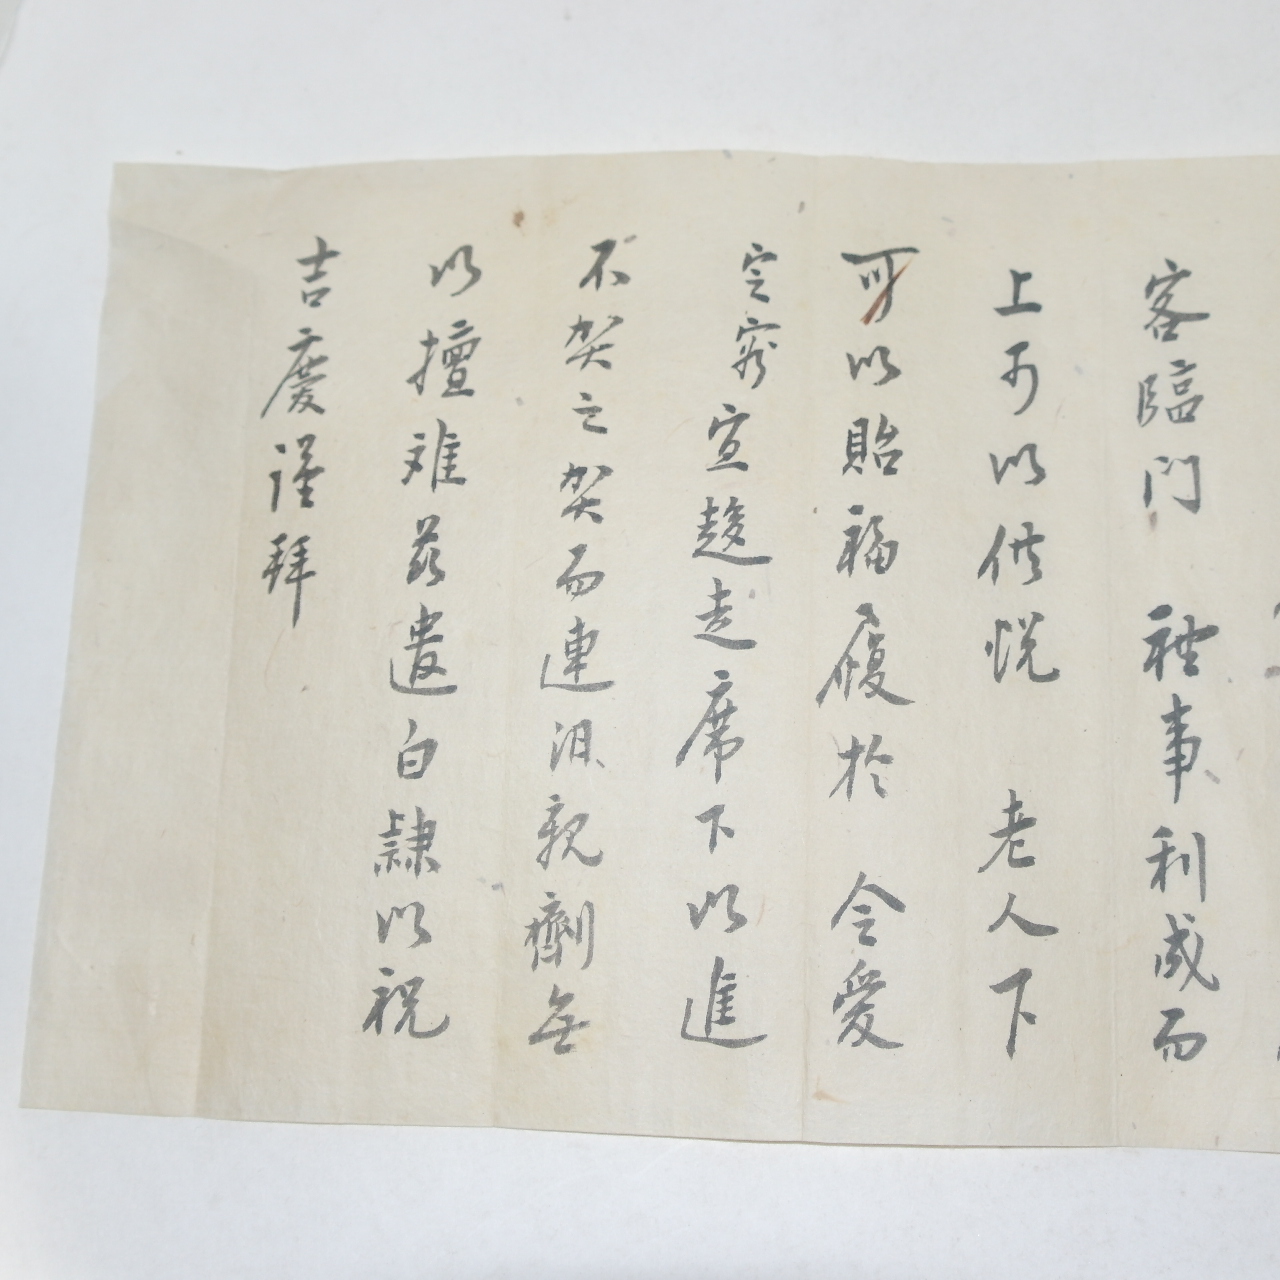 客臨門 禮事利成而
上可以供悅 老人下
可以貽福履於 令愛
宜趍走席下以進
不賀之賀而連沮親劑無
以擅難茲遣白隷以祝
吉慶謹拜